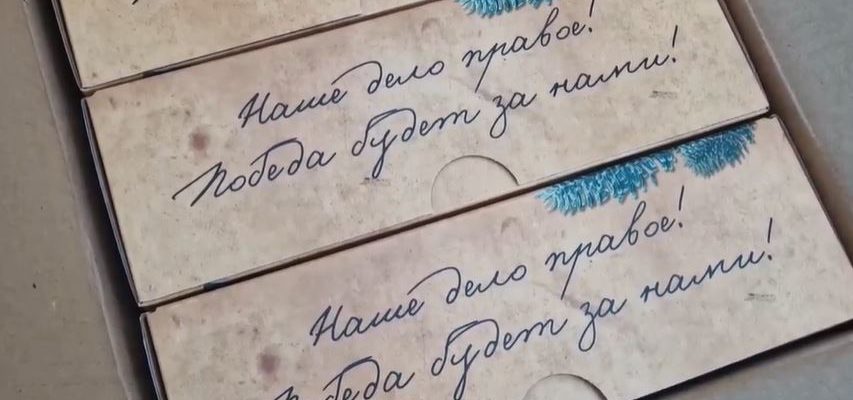 Наше дело правое!
Победа будет за нами!
Наше дело правое!
Победа будет за нами!